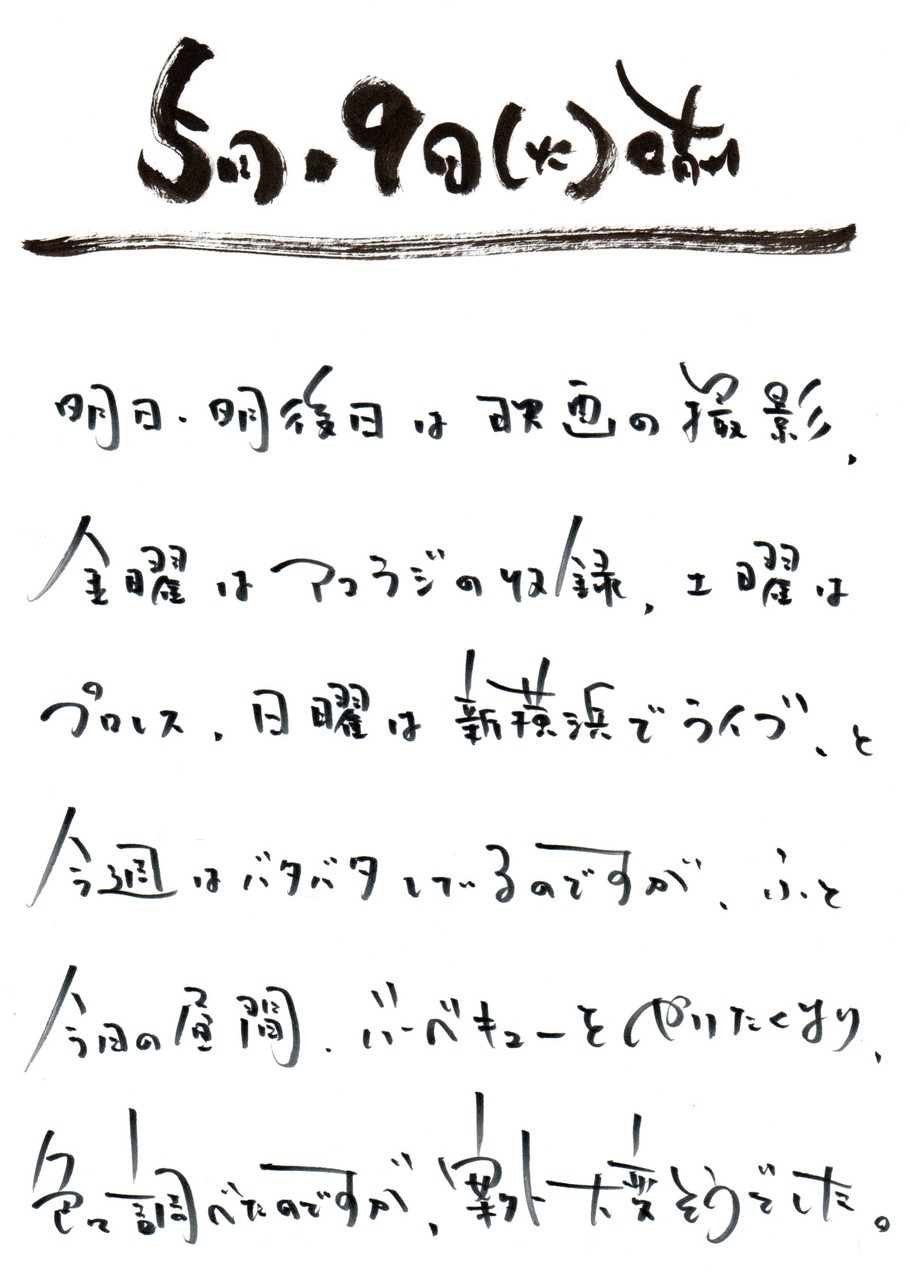 5月.9日(火)晴
明日.明後日は映画の撮影、
金曜はアコラジの収録、土曜は
プロレス、日曜は新横浜でライブ、と
今週はバタバタしているのですが、ふと
今日の昼間、バーベキューをやりたくなり、
色々調べたのですが、案外大変そうでした。